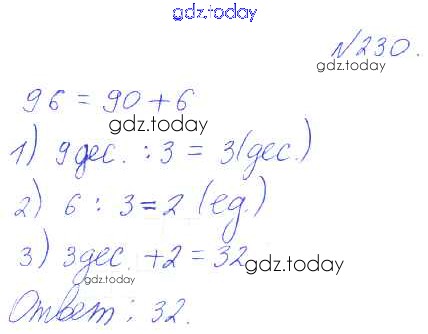 gdz.today
№230.
gdz.today
96 = 90 + 6
gdz.today
1) 9дес. : 3 = 3(дес.)
gdz.today
2) 6 : 3 = 2 (ед.)
3) 3дес. + 2 = 32
gdz.today
Ответ: 32.
gdz.today